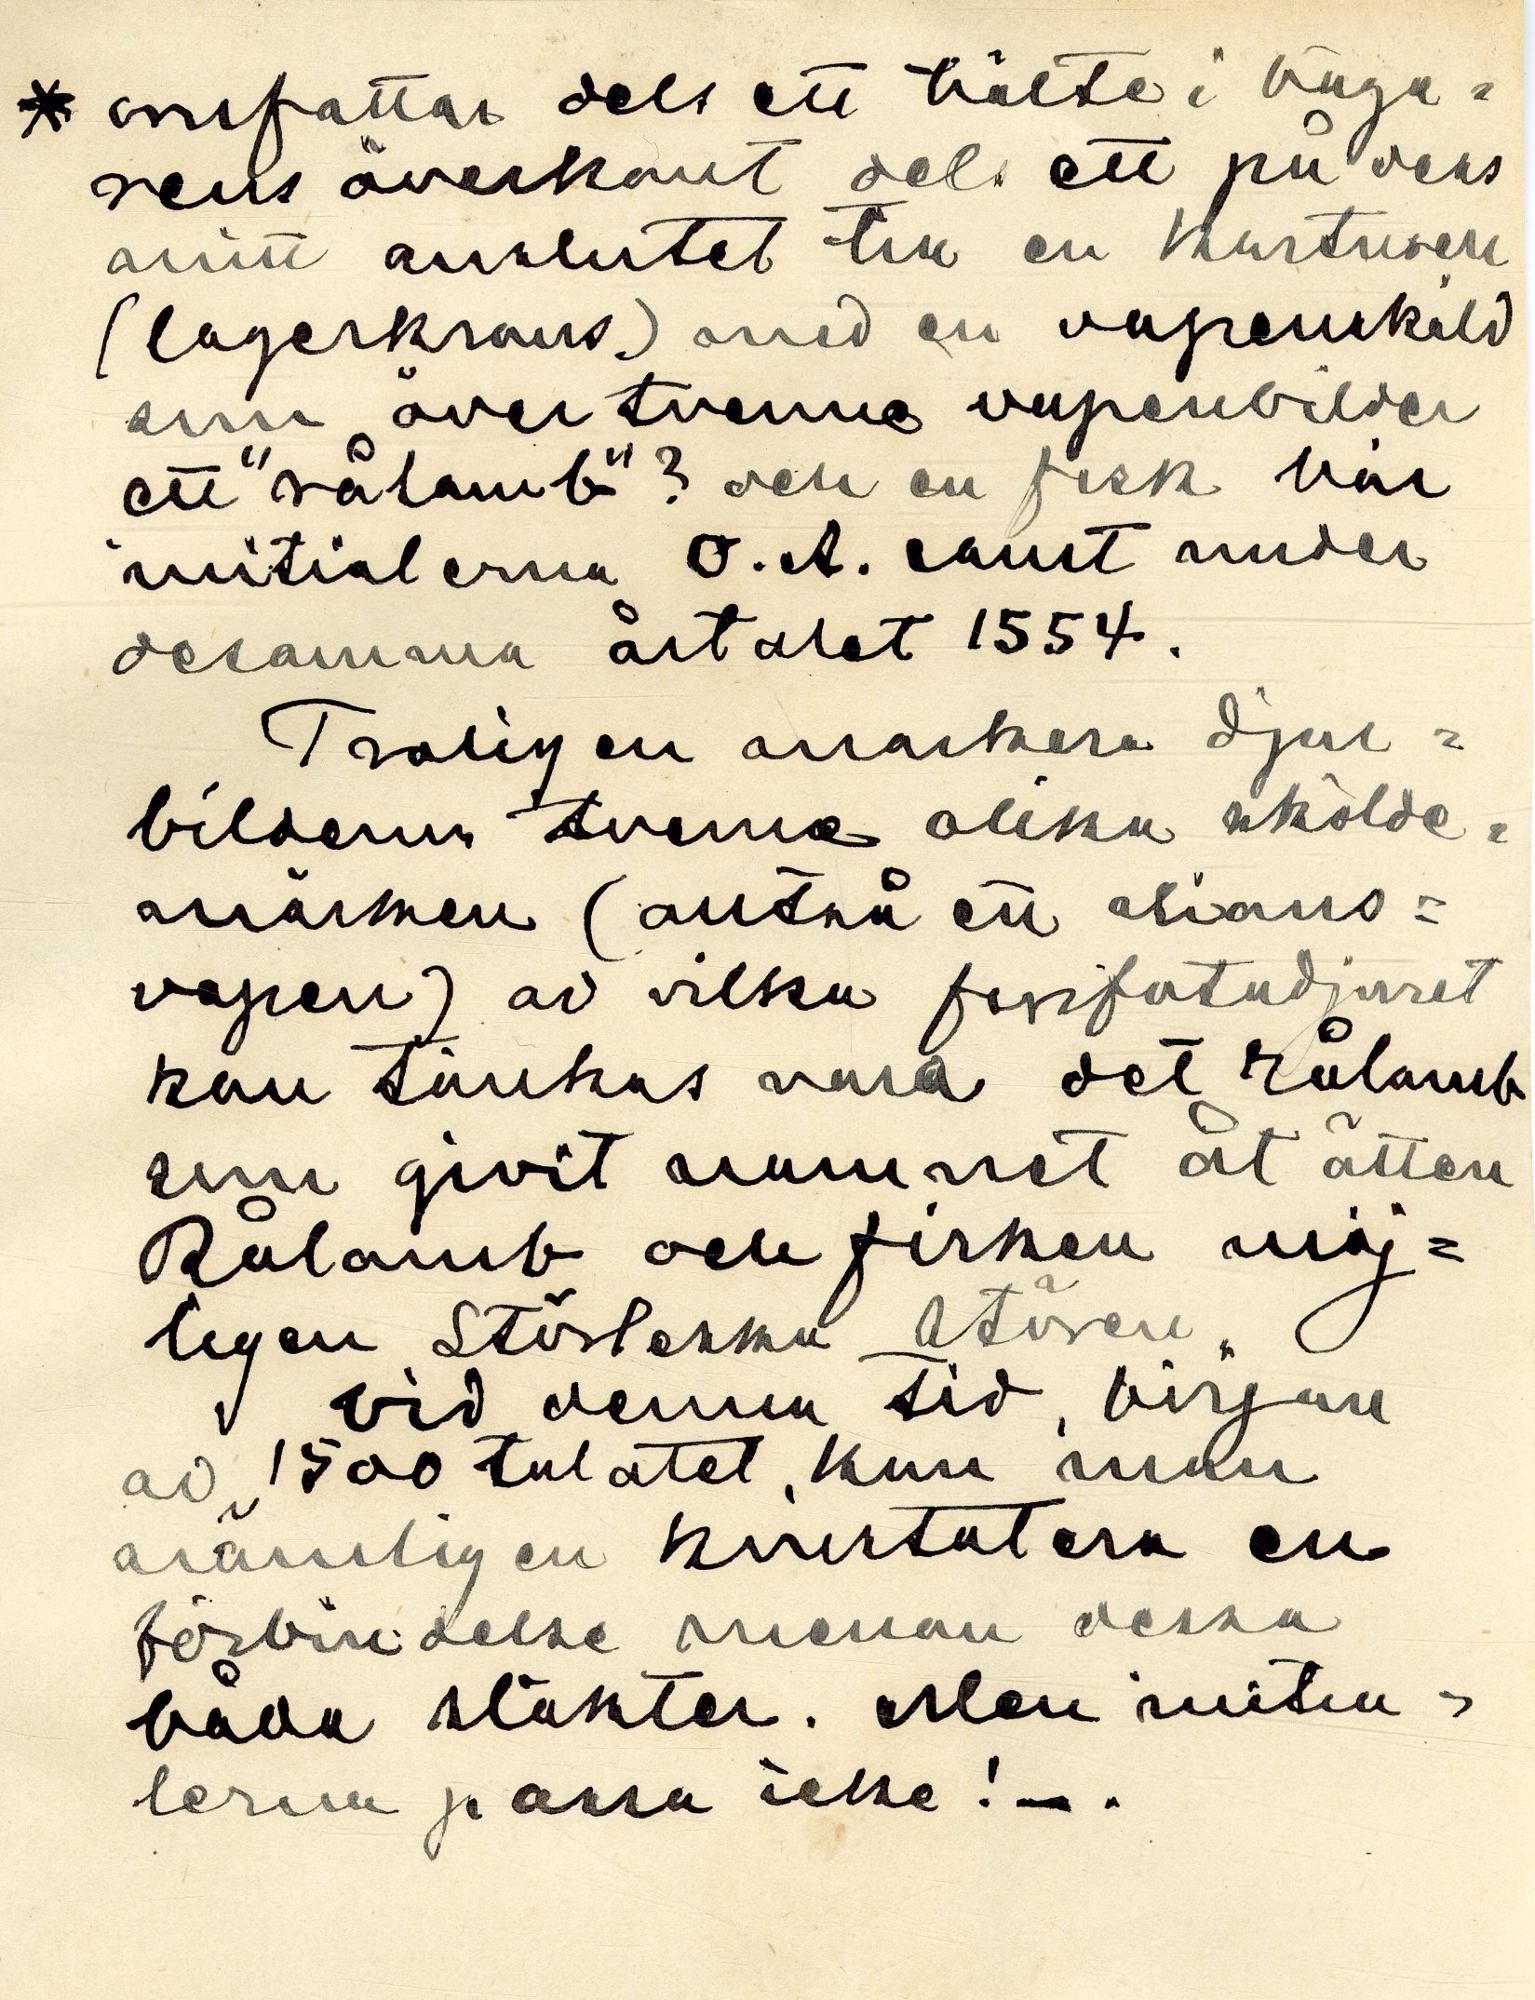 * omfattar dels ett bälte i bäga=
rens överkant dels ett på dess
mitt anslutet till en kartusch
(lagerkrans) med en vapensköld
som över tvenne vapenbilder
ett "rålamb"? och en fisk bär
initialerna O.A. samt under
desamma årtalet 1554.
Troligen markera djur=
bilderna tvenne olika skölde=
märken (alltså ett alians=
vapen) av vilka fyrfotadjuret
kan tänkas vara det rålamb
som givit namnet åt ätten
Rålamb och fisken möj=
ligen Störleska stören.
Vid denna tid, början
av 1500 talatet, kan man
nämligen konstatera en
förbindelse mellan dessa
båda släkter. Men initia=
lerna passa icke! -.